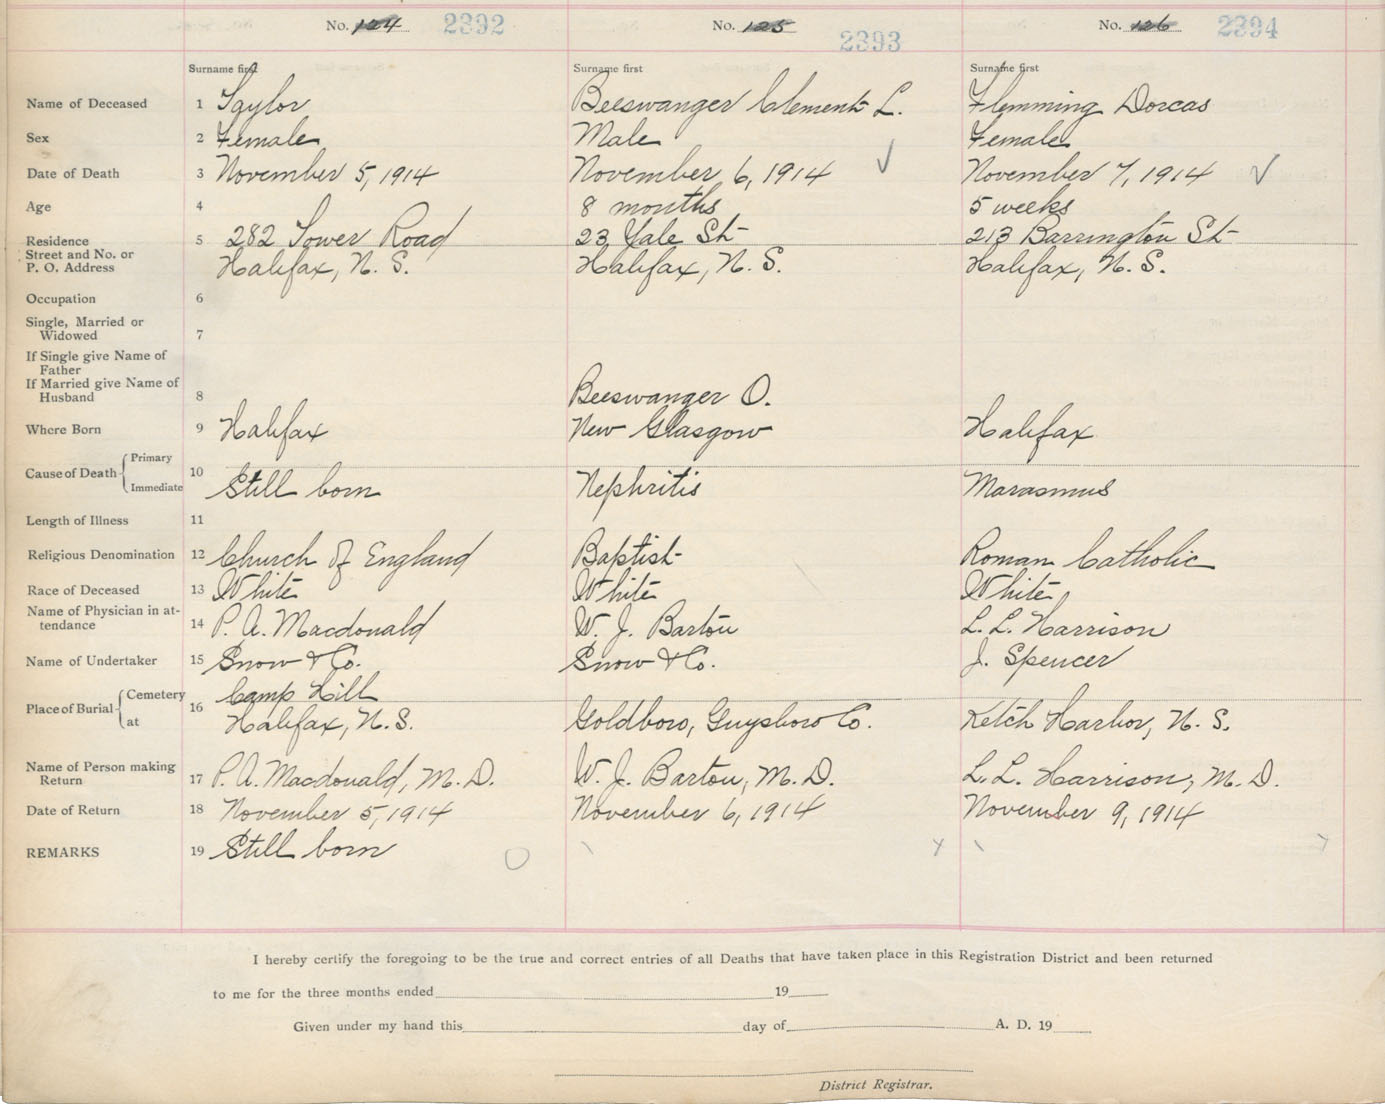 No. 124 2392 No. 125 2393 No. 126 2394
Surname first Surname first Surname first
Name of Deceased 1 Taylor Beeswanger Clement L. Flemming Dorcas
Sex 2 Female Male Female
Date of Death 3 November 5, 1914 November 6, 1914 November 7, 1914
Age 4 8 months 5 weeks
Residence 5 282 Tower Road 23 Yale St 213 Barrington St
Street and No. or
P. O. Address Halifax, N. S. Halifax, N. S. Halifax, N. S.
Occupation 6
Single, Married or
Widowed 7
If Single give Name of
Father
If Married give Name of
Husband 8 Beeswanger O.
Where Born 9 Halifax New Glasgow Halifax
Cause of Death Primary
Immediate 10 Still born Nephritis Marasmus
Length of Illness 11
Religious Denomination 12 Church of England Baptist Roman Catholic
Race of Deceased 13 White White White
Name of Physician in at-
tendance 14 P. A. Macdonald W. J. Barton L. L. Harrison
Name of Undertaker 15 Snow & Co. Snow & Co. J. Spencer
Place of Burial Cemetery 16 Camp Hill
at Halifax, N.S. Goldboro, Guysboro Co. Ketch Harbor, N. S.
Name of Person making
Return 17 P. A. Macdonald, M. D. W. J. Barton, M. D. L. L. Harrison, M. D.
Date of Return 18 November 5, 1914 November 6, 1914 November 9, 1914
REMARKS 19 Still born
I hereby certify the foregoing to be the true and correct entries of all Deaths that have taken place in this Registration District and been returned
to me for the three months ended 19
Given under my hand this day of A. D. 19
District Registrar.